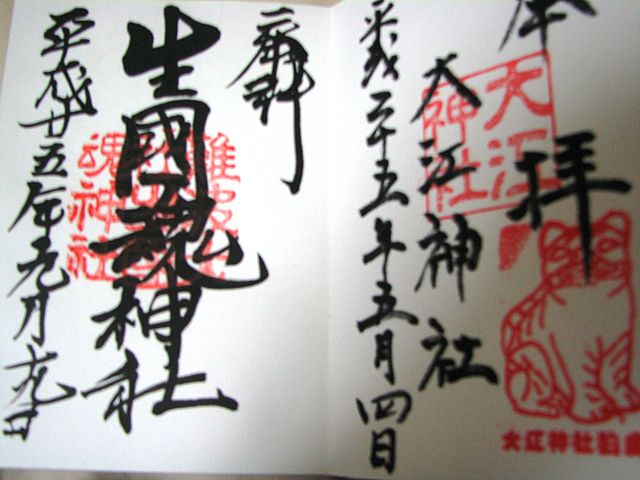 奉拝
大江神社
大江神社
平成二十五年五月四日
大江神社
奉拝
生國魂神社
平成廿五年元月元日